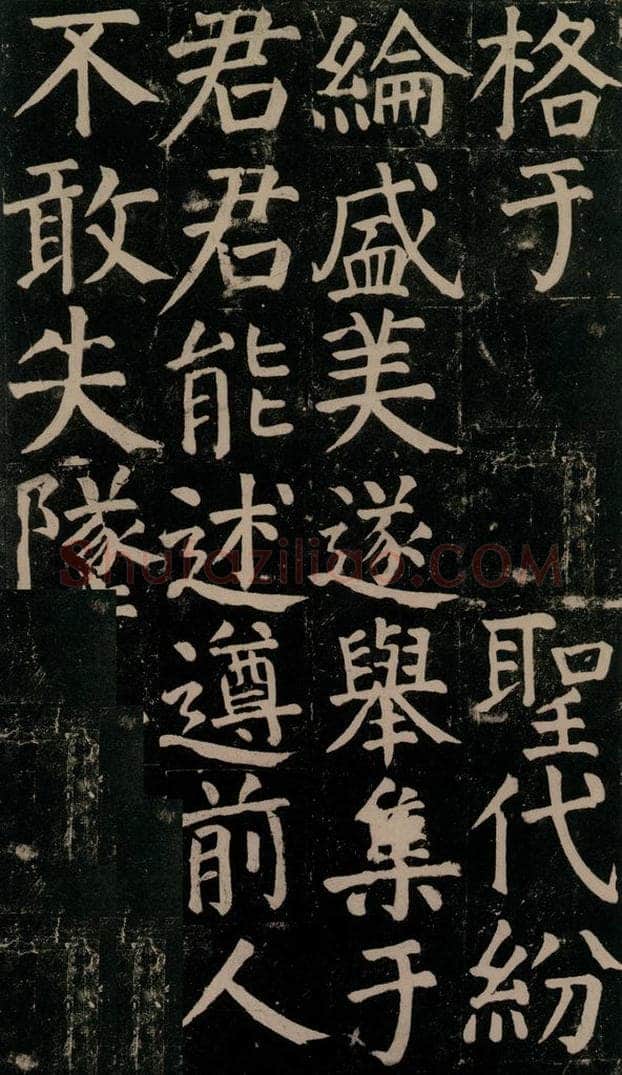 格于 聖代紛
綸盛美遂舉集于
君君能述遵前人
不敢失隊
Shufaziliao.COM